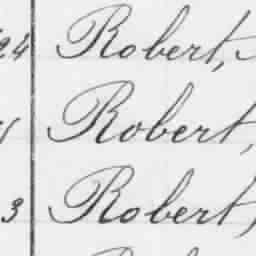 24 Robert,
Robert,
3 Robert,